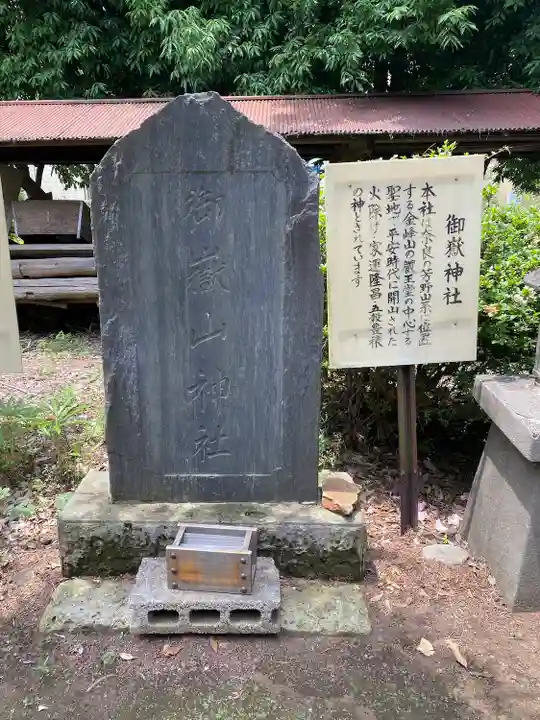 御嶽山神社
御嶽神社
本社は奈良の芳野山系に位置
する金峰山の蔵王堂の中心する
聖地で平安時代に開山された
火除け・家運隆昌・五穀豊穣
の神とされています